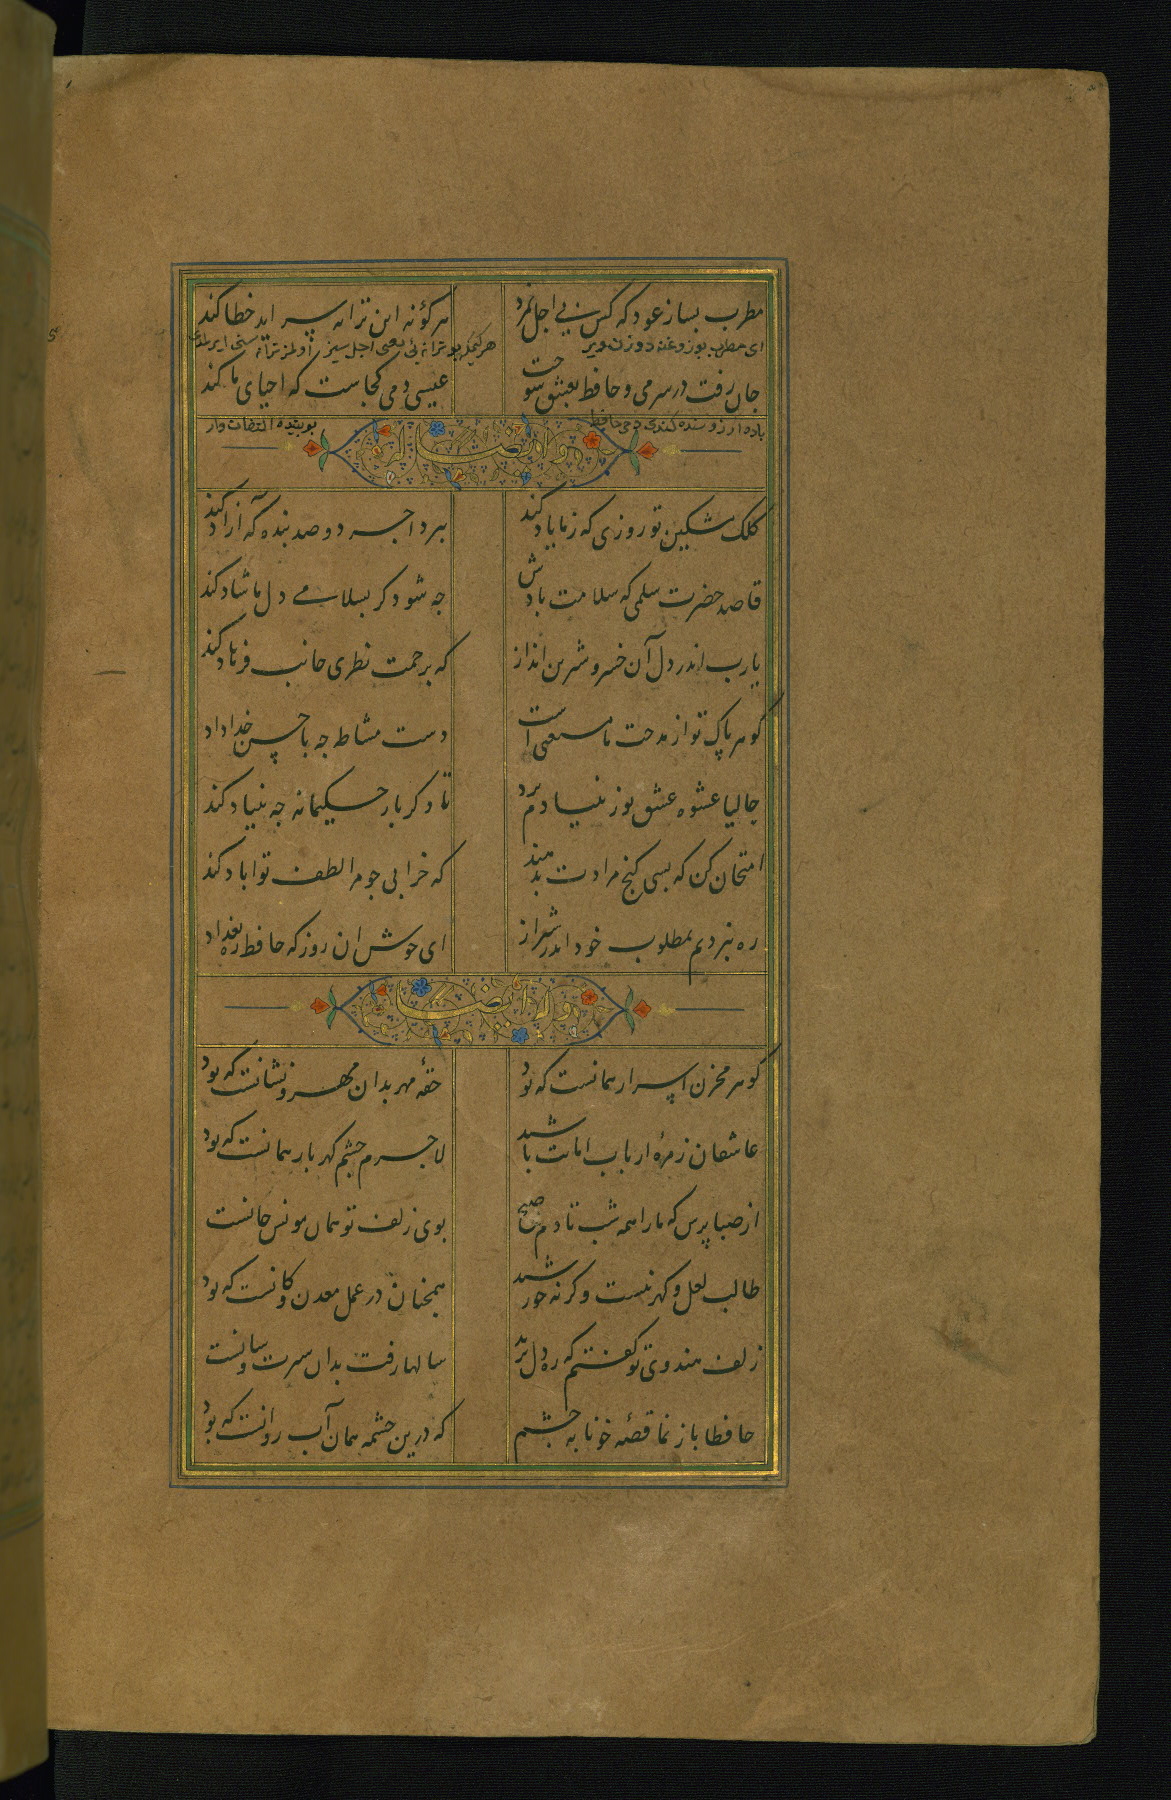 مطرب بساز عود که کس بی اجل نمرد هر کو نه این ترانه سراید خطا کند
ای مطرب بوزوغنه دوزن ویر
جان رفت در سر می و حافظ بعشق سوخت عیسی دمی کجاست که احیای ما کند
باده ارزوسنده کندی دمی حافظ بوبنده التفات وار
وله ایضا
کلک مشکین تو روزی که ز ما یاد کند ببرد اجر دو صد بنده که ازاد کند
قاصد حضرت سلمی که سلامت بادش جه شود کر بسلامے دل ما شاد کند
یارب اندر دل آن خسرو شیرین انداز که برحمت نظری جانب فرهاد کند
کوهر پاک تو از مدحت ما مستغنی است دست مشاطه جه با حسن خداداد
حالیا عشوه عشق تو ز بنیادم برد تا دکر بار حکیمانه جه بنیاد کند
امتحان کن که بسی کنج مرادت بدهند که خرابی جو مرا لطف تو اباد کند
ره نبردیم بمطلوب خود اندر شیراز ای خوش ان روز که حافظ ره بغداد
وله ایضا
کوهر مخزن اسرار همانست که بود حقهٔ مهر بدان مهر و نشانست که بود
عاشقان زمرهٔ ارباب امانت باشند لاجرم جشم کهربار همانست که بود
از صبا پرس که ما را همه شب تا دم صبح بوی زلف تو همان مونس جانست
طالب لعل و کهر نیست وکرنه خورشید همجنان در عمل معدن و کانست که بود
زلف هندوی تو کفتم که ره دل نزند سالها رفت بدان سیرت و سانست
حافظا باز نما قصهٔ خونابه جشم که درین جشمه همان آب روانست که بود